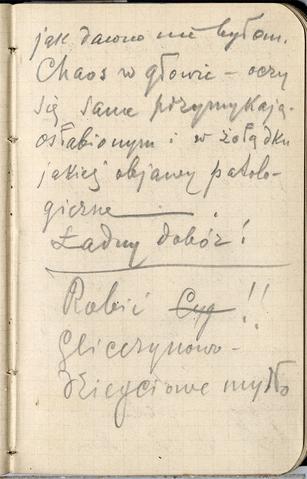 jak dawno nie byłam.
Chaos w głowie – oczy
się same przymykają.
osłabionym i w żołądku
jakieś objawy patolo-
giczne
Ładny dobór!
Robić Cyg !!
Glicerynowo-
dziegciowe mydło